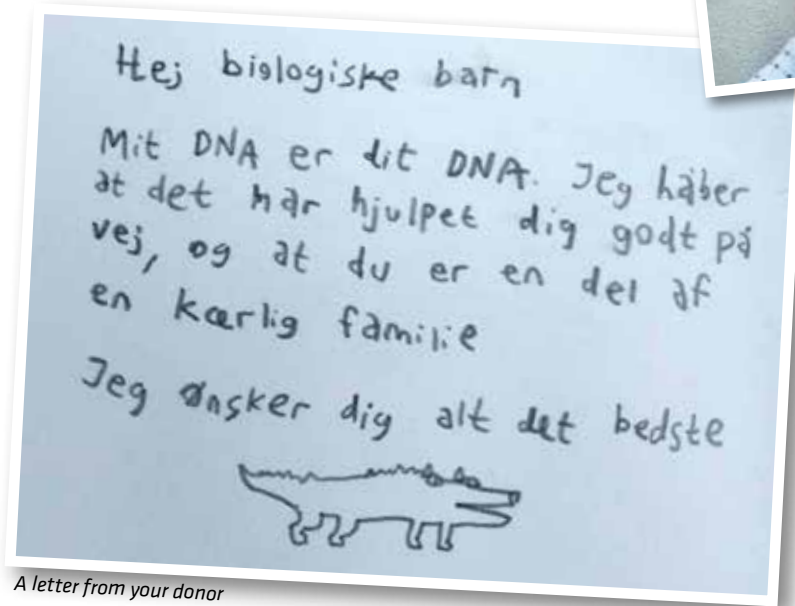 Hej biologiske barn
Mit DNA er dit DNA. Jeg håber
at det har hjulpet dig godt på
vej, og at du er en del af
en kærlig familie
Jeg ønsker dig alt det bedste
A letter from your donor